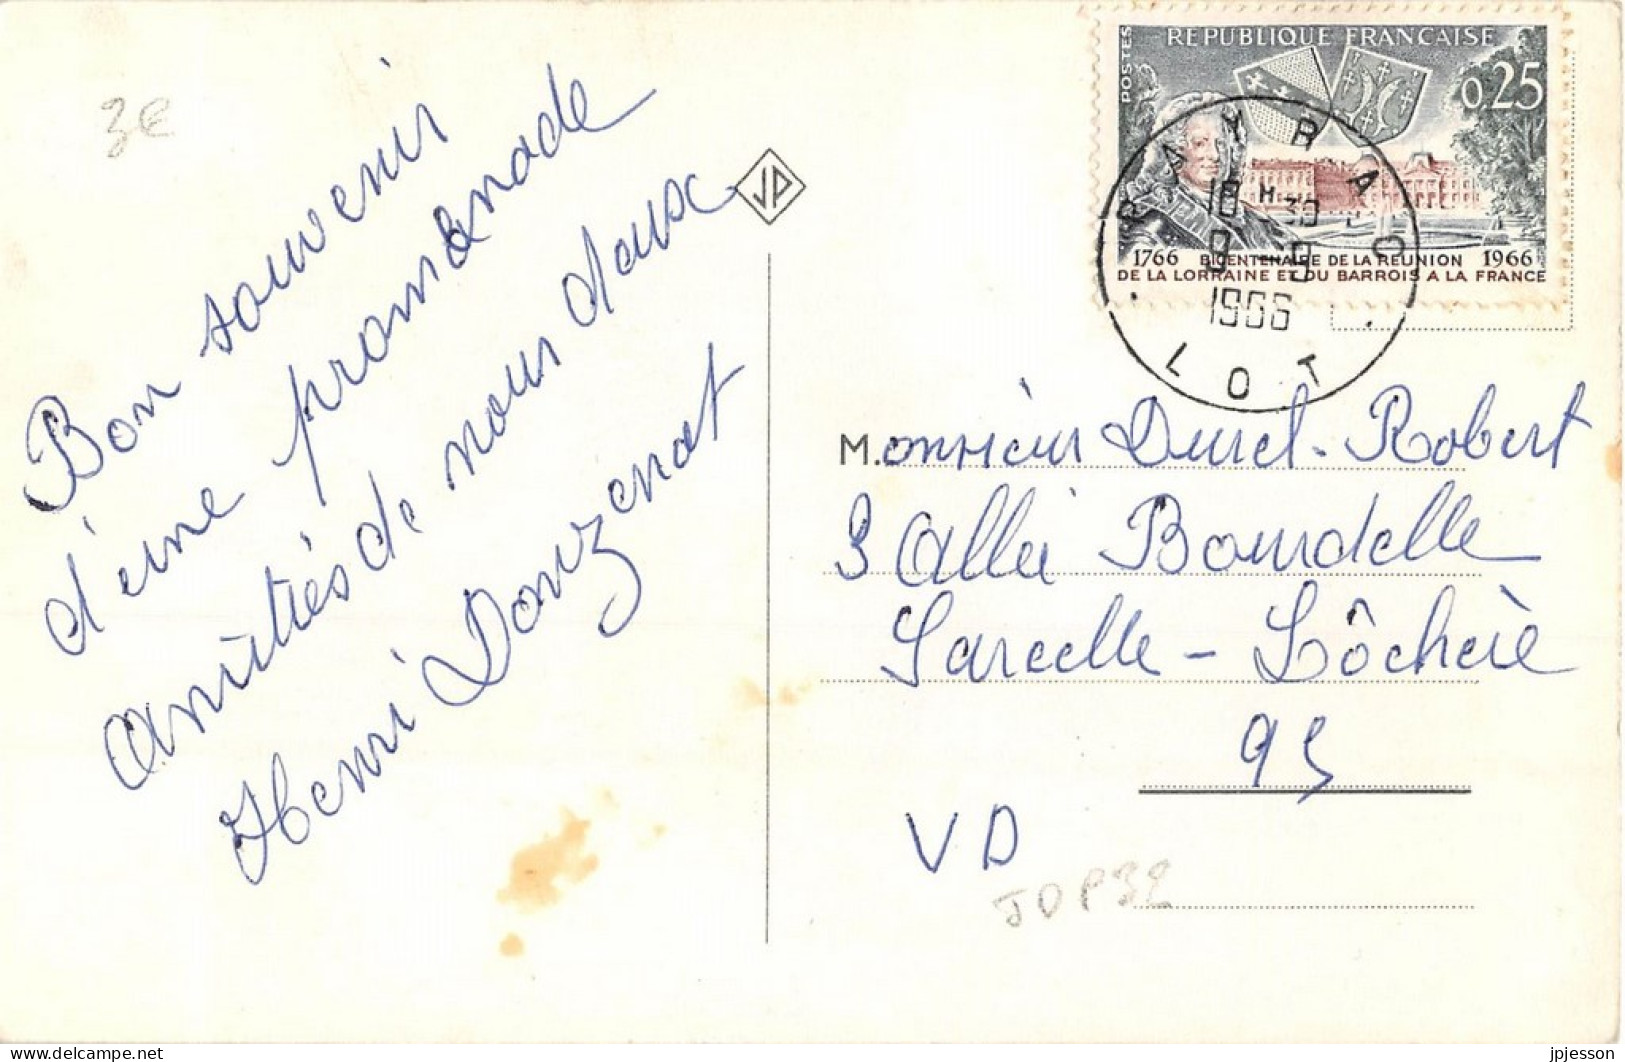 3€
Bon souvenir
d'une promenade
amitiés de nous deux
Henri Douzenat
JP
POSTES
REPUBLIQUE FRANCAISE
0,25
1766 BICENTENAIRE DE LA REUNION 1966
DE LA LORRAINE ET DU BARROIS A LA FRANCE
PAYRAC
18 H 30
9 - 9
1966
LOT
M.onsieur Durel-Robert
3 Allei Bourdelle
Sarcelle - Lôcheie
95
VD
JDP32
jpjesson